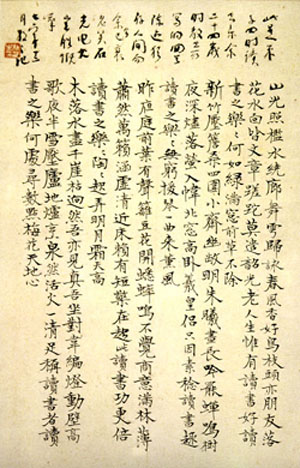 此是朱
子四時讀
書樂余
二十四歲
時教
寫的四
在人間
山光照檻水繞廊舞雩歸詠春風香好鳥枝頭亦朋友落
花水面皆文章蹉跎莫遣韶光老人生惟有讀書好讀
書之樂〻何如綠滿窗前草不除
新竹壓簷桑四圍小齋幽敞明朱曦晝長吟罷蟬鳴樹
夜深燼落螢入幃北窗高臥羲皇侶只因素稔讀書趣
讀書之樂〻無窮撥琴一曲來薰風
昨夜庭前葉有聲籬豆花開蟋蟀鳴不覺商意滿林薄
蕭然萬籟涵虛清近床賴有短檠在趁此讀書功更倍
讀書之樂〻陶〻起弄明月霜天高
木落水盡千崖枯迥然吾亦見真吾坐對韋編燈動壁高
歌夜半雪壓廬地爐烹泉然活火一清足稱讀書者讀
書之樂何處尋數點梅花天地心